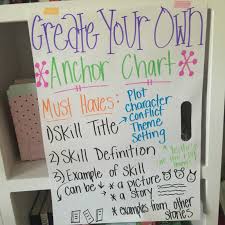 Create Your Own
Anchor Chart
Must Haves:
Plot
character
Conflict
Theme
Setting
1) Skill Title
2) Skill Definition
3) Example of Skill
can be
* a picture
* a story
* examples from other
stories